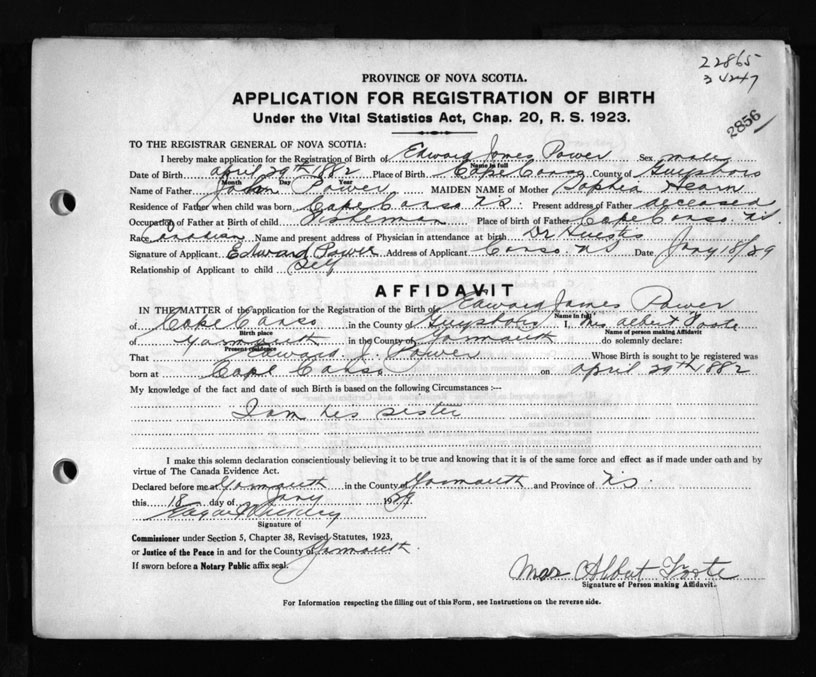 22865
34247
2856
PROVINCE OF NOVA SCOTIA.
APPLICATION FOR REGISTRATION OF BIRTH
Under the Vital Statistics Act, Chap. 20, R. S. 1923.
TO THE REGISTRAR GENERAL OF NOVA SCOTIA:
I hereby make application for the Registration of Birth of Edward James Power Sex male
Name in full
Date of Birth April 29th 1882 Place of Birth Cape Canso County of Guysboro
Month Day Year
Name of Father John Power MAIDEN NAME of Mother Sophia Hearn
Residence of Father when child was born Cape Canso N.S. Present address of Father deceased
Occupation of Father at Birth of child Fisherman Place of birth of Father Cape Canso N.S.
Race Canadian Name and present address of Physician in attendance at birth Dr
Signature of Applicant Edward Power Address of Applicant Canso. N.S Date Jany 18/29
Relationship of Applicant to child Self
AFFIDAVIT
IN THE MATTER of the application for the Registration of the Birth of Edward James Power
Name in full
of Cape Canso in the County of Guysboro I, Mrs Albert Foote
Birth place Name of person making Affidavit
of Yarmouth in the County of Yarmouth do solemnly declare:
Present residence
That Edward J. Power Whose Birth is sought to be registered was
born at Cape Canso on April 29th 1882
My knowledge of the fact and date of such Birth is based on the following Circumstances :—
I am his sister
I make this solemn declaration conscientiously believing it to be true and knowing that it is of the same force and effect as if made under oath and by
virtue of The Canada Evidence Act.
Declared before me at Yarmouth in the County of Yarmouth and Province of N.S.
this 18 day of Jany 1929
Signature of
Commissioner under Section 5, Chapter 38, Revised Statutes, 1923,
or Justice of the Peace in and for the County of Yarmouth.
If sworn before a Notary Public affix seal.
Mrs Albert Foote
Signature of Person making Affidavit.
For Information respecting the filling out of this Form, see Instructions on the reverse side.